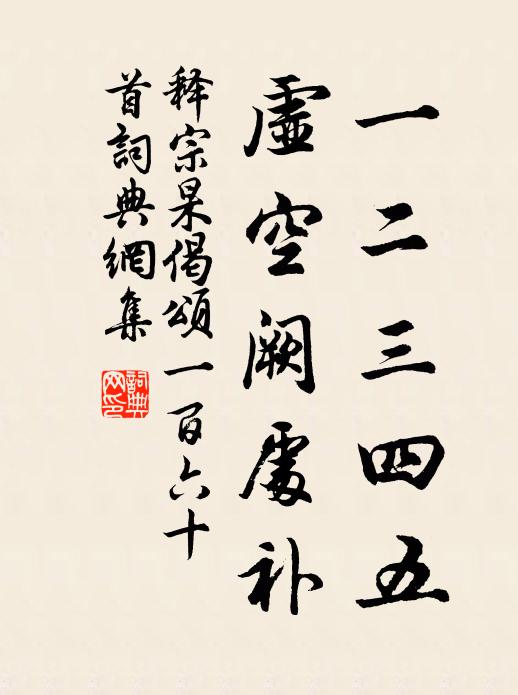 一二三四五
虛空阙處补
释宗杲偈頌一百六十
首詞典網集
詞典
网印